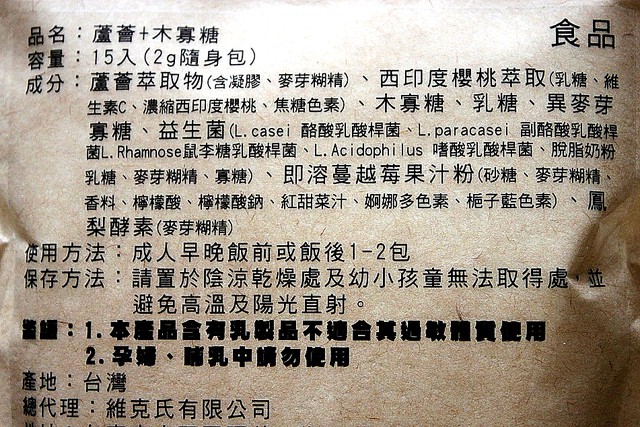 品名：蘆薈+木寡糖
食品
容量：15入(2g隨身包)
成分：蘆薈萃取物(含凝膠、麥芽糊精)、西印度櫻桃萃取(乳糖、維
生素C、濃縮西印度櫻桃、焦糖色素)、木寡糖、乳糖、異麥芽
寡糖、益生菌(L.casei 酪酸乳酸桿菌、L.paracasei 副酪酸乳酸桿
菌L.Rhamnose鼠李糖乳酸桿菌、L.Acidophilus 嗜酸乳酸桿菌、脫脂奶粉
乳糖、麥芽糊精、寡糖)、即溶蔓越莓果汁粉(砂糖、麥芽糊精、
香料、檸檬酸、檸檬酸鈉、紅甜菜汁、婀娜多色素、梔子藍色素)、鳳
梨酵素(麥芽糊精)
使用方法：成人早晚飯前或飯後1-2包
保存方法：請置於陰涼乾燥處及幼小孩童無法取得處，並
避免高溫及陽光直射。
警語：1.本產品含有乳製品不適合其過敏體質使用
2.孕婦、哺乳中請勿使用
產地：台灣
總代理：維克氏有限公司